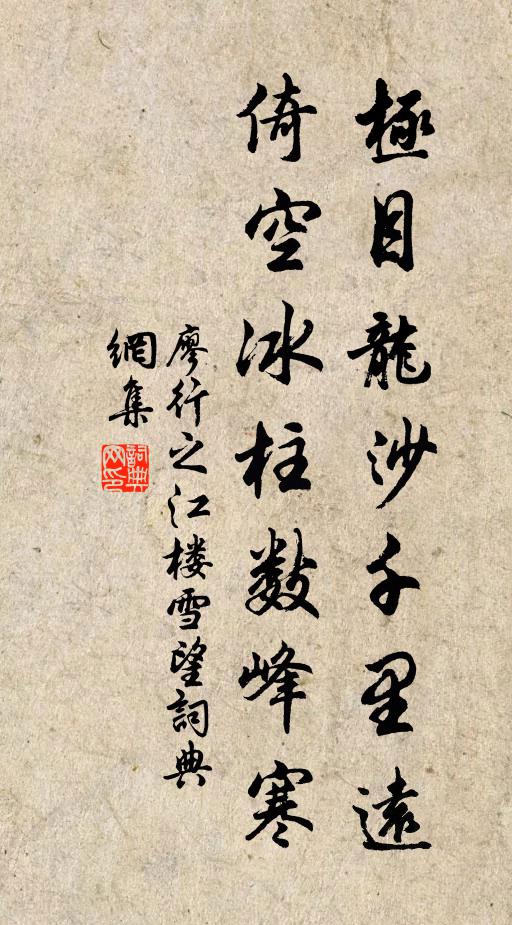 極目龍沙千里遠
倚空冰柱數峰寒
廖行之江楼雪望詞典
網集
詞典网印